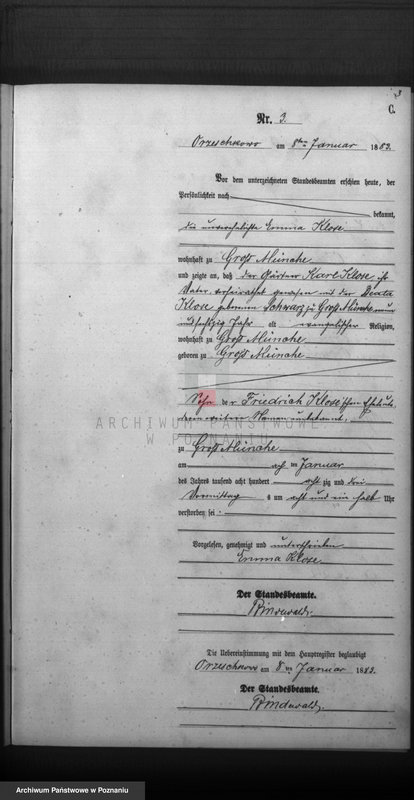 C.
Nr. 3.
Orzeschkowo am 8ten Januar 1883.
Vor dem unterzeichneten Standesbeamten erschien heute, der
Persönlichkeit nach
bekannt,
die unverehelichte Emma Klose
wohnhaft zu Groß Münche
und zeigte an, daß der Gärtner Karl Klose ihr
Vater, verheirathet gewesen mit der Beata
Klose geborenen Schwarz zu Groß Münche, neun
und sechzig Jahr alt evangelischer Religion,
wohnhaft zu Groß Münche
geboren zu Groß Münche
Sohn der Friedrich Klose'schen Eheleute,
deren weitere Namen unbekannt,
ARCHIWUM PAŃSTWOWE
W POZNANIU
zu Groß Münche
am acht ten Januar
des Jahres tausend acht hundert acht zig und drei
Vormittag s um acht und ein halb Uhr
verstorben sei:
Vorgelesen, genehmigt und unterschrieben
Emma Klose.
Der Standesbeamte.
Die Uebereinstimmung mit dem Hauptregister beglaubigt
Orzeschkowo am 8 ten Januar 1883.
Der Standesbeamte.
Archiwum Państwowe w Poznaniu